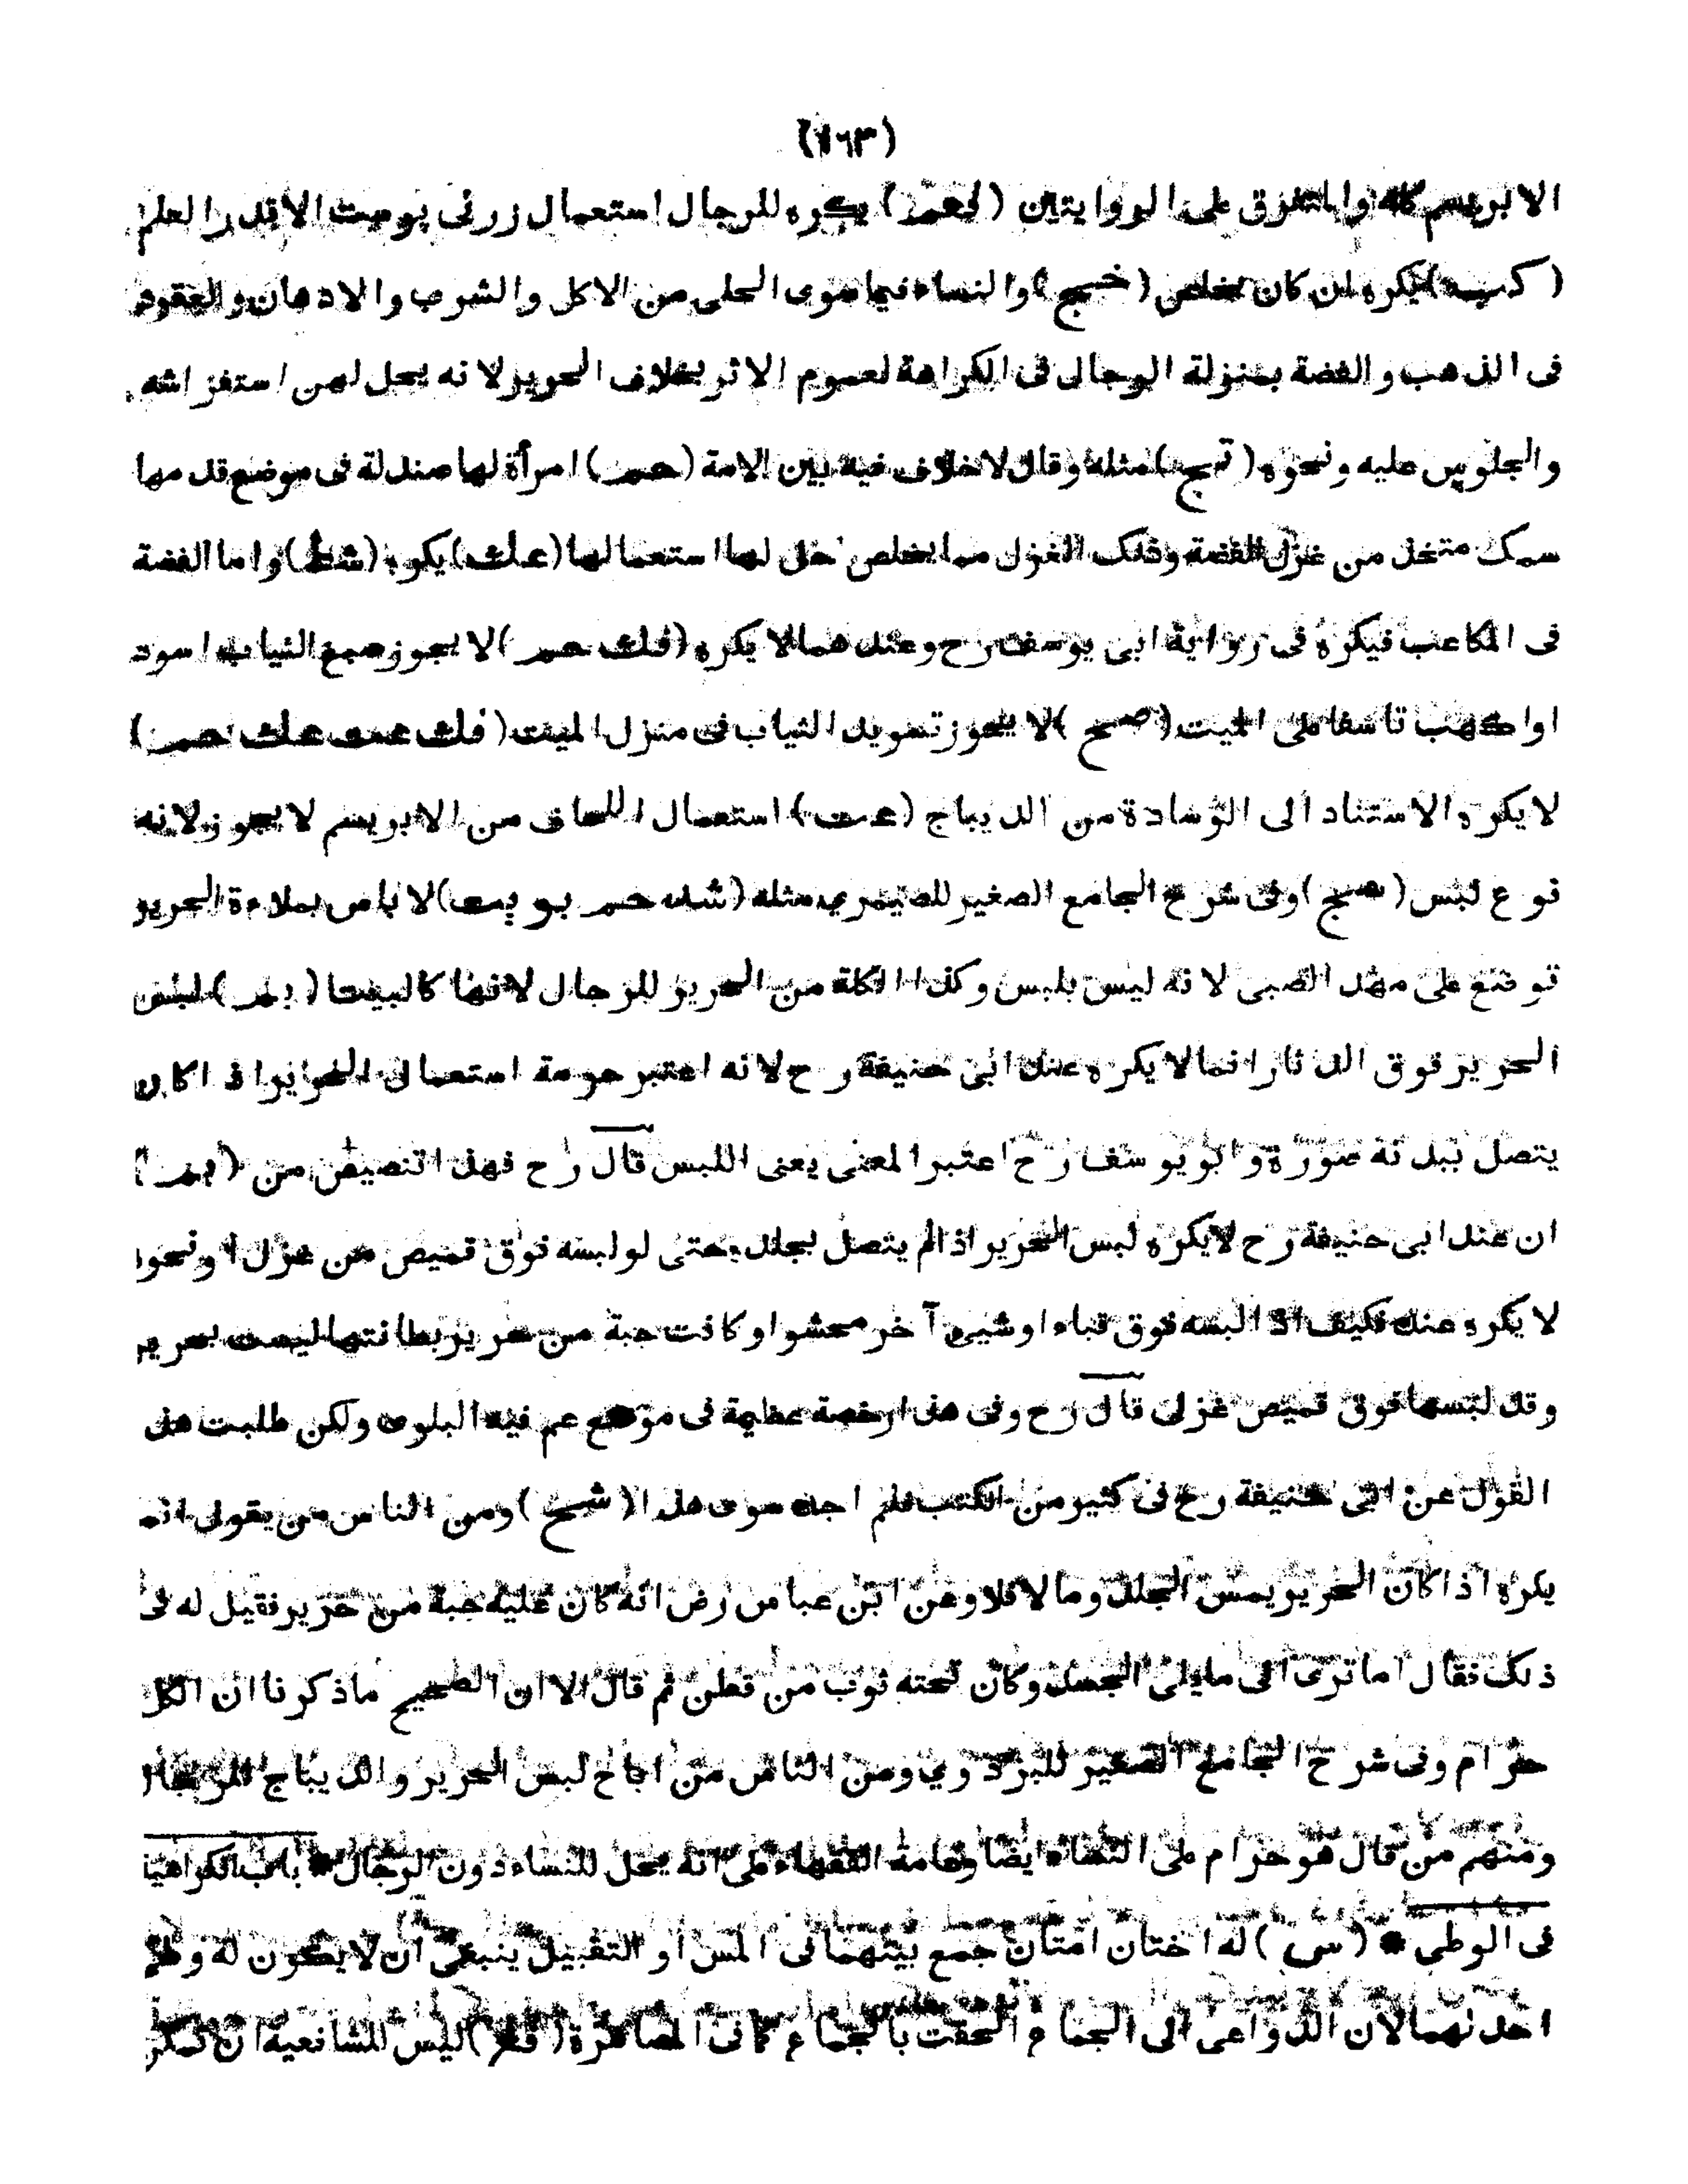 (١٦٣)
الابريسم كله والتفرق على الروايتين ( ) يكره للرجال استعمال زرنى پوست الاقدر العلم
(كب) يكره ان كان يخلص (خـج) والنساء فيما سوى الحلى من الاكل والشرب والادهان والعقود
فى الذهب والفضة بمنزلة الرجال فى الكراهة لعموم الاثر بخلاف الحرير لانه يحل لهن استفراشه
والجلوس عليه ونحوه (تج) مثله وقال لا خلاف فيه بين الامة (حم) امرأة لها صندلة فى موضع قدمها
سمك متخذ من غزل الفضة وذلك الغزل مما يخلص حل لها استعمالها (عك) يكره (شط) واما الفضة
فى المكاعب فيكره فى رواية ابى يوسف رح وعندهما لا يكره (فك حم) لا يجوز صبغ الثياب اسود
او اكهب تاسفا على الميت (صح) لا يجوز تسويد الثياب فى منزل الميت (فك عت عك حم)
لا يكره الاستناد الى الوسادة من الديباج (عت) استعمال اللحاف من الابريسم لا يجوز لانه
نوع لبس (صبح) وفى شرح الجامع الصغير للصيمري مثله (شد حم بو بت) لا باس بملاءة الحرير
توضع على مهد الصبى لانه ليس بلبس وكذا الكلة من الحرير للرجال لانها كالبيت (بم) لبس
الحرير فوق الدثار انما لا يكره عند ابى حنيفة رح لانه اعتبر حرمة استعمال الحرير اذا كان
يتصل ببدنه صورة وابو يوسف رح اعتبر المعنى يعنى اللبس قال رح فهذا تنصيص من (بم)
ان عند ابى حنيفة رح لا يكره لبس الحرير اذا لم يتصل بجلده حتى لو لبسه فوق قميص من غزل او نحوه
لا يكره عنده فكيف اذا البسه فوق قباء او شيء آخر محشو او كانت جبة من حرير بطانتها ليست بحرير
وقد لبسها فوق قميص غزلى قال رح وفى هذا رخصة عظيمة فى موضع عم فيه البلوى ولكن طلبت هذا
القول عن ابى حنيفة رح فى كثير من الكتب فلم اجد سوى هذا (شح) ومن الناس من يقول انما
يكره اذا كان الحرير يمس الجلد وما لا فلا وعن ابن عباس رض انه كان عليه جبة من حرير فقيل له فى
ذلك فقال اما ترى الى ما يلى الجسد وكان تحته ثوب من قطن ثم قال الا ان الصحيح ما ذكرنا ان الكل
حرام وفى شرح الجامع الصغير للبزدوي ومن الناس من اباح لبس الحرير والديباج للرجال
ومنهم من قال هو حرام على النساء ايضا وعامة الفقهاء على انه يحل للنساء دون الرجال * باب الكراهية
فى الوطى * (س) له اختان امتان جمع بينهما فى المس او التقبيل ينبغى ان لا يكون له وطء
احدنهما لان الدواعى الى الجماع التحقت بالجماع كما فى المصاهرة ( ) ليس للشافعية ان تمكن